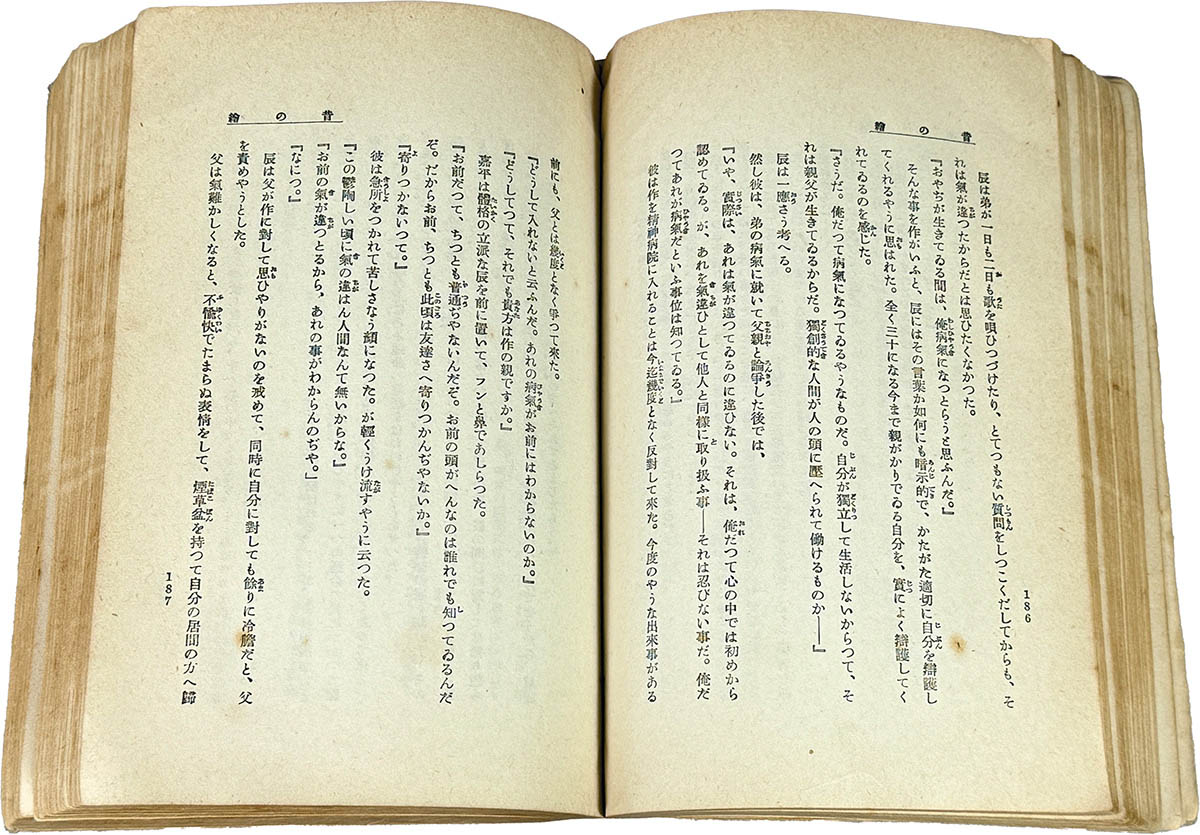 昔の繪
辰は弟が一日も二日も歌を唄ひつづけたり、とてつもない質問をしつこくだしてからも、そ
れは氣が違つたからだとは思ひたくなかつた。
『おやぢが生きてゐる間は、俺病氣になつとらうと思ふんだ。』
そんな事を作がいふと、辰にはその言葉が如何にも暗示的で、かたがた適切に自分を辯護し
てくれるやうに思はれた。全く三十になる今まで親がかりでゐる自分を、實によく辯護してく
れてゐるのを感じた。
『さうだ。俺だつて病氣になつてゐるやうなものだ。自分が獨立して生活しないからつて、そ
れは親父が生きてゐるからだ。獨創的な人間が人の頭に壓へられて働けるものか――』
辰は一應さう考へる。
然し彼は、弟の病氣に就いて父親と論爭した後では、
『いや、實際は、あれは氣が違つてゐるのに違ひない。それは、俺だつて心の中では初めから
認めてゐる。が、あれを氣違ひとして他人と同樣に取り扱ふ事――それは忍びない事だ。俺だ
つてあれが病氣だといふ事位は知つてゐる。』
彼は作を精神病院に入れることは今迄幾度となく反對して來た。今度のやうな出來事がある
186
昔の繪
前にも、父とは幾度となく爭つて來た。
『どうして入れないと云ふんだ。あれの病氣がお前にはわからないのか。』
『どうしてつて、それでも貴方は作の親ですか。』
嘉平は體格の立派な辰を前に置いて、フンと鼻であしらつた。
『お前だつて、ちつとも普通ぢやないんだぞ。お前の頭がへんなのは誰れでも知つてゐるんだ
ぞ。だからお前、ちつとも此頃は友達さへ寄りつかんぢやないか。』
『寄りつかないつて。』
彼は急所をつかれて苦しさなう顏になつた。が輕くうけ流すやうに云つた。
『この鬱陶しい頃に氣の違はん人間なんて無いからな。』
『お前の氣が違つとるから、あれの事がわからんのぢや。』
『なにつ。』
辰は父が作に對して思ひやりがないのを戒めて、同時に自分に對しても餘りに冷膽だと、父
を責めやうとした。
父は氣難かしくなると、不愉快でたまらぬ表情をして、煙草盆を持つて自分の居間の方へ歸
187